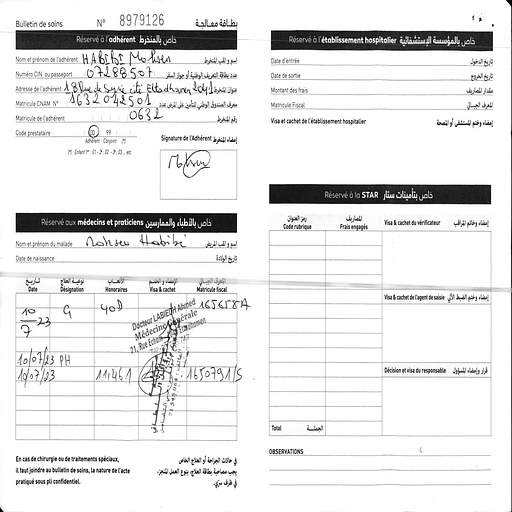 Bulletin de soins N° 8979126 بطاقة معالجة
Réservé à l'adhérent خاص بالمنخرط
Nom et prénom de l'adhérent HABIBI Mohsen اسم و لقب المنخرط
Numéro CIN ou passeport 07288507 عدد بطاقة التعريف الوطنية أو جواز السفر
Adresse de l'adhérent 18 Rue de عنوان المنخرط
Matricule CNAM N° 1632042501
Matricule de l'adhérent 0632 رقم المنخرط
Code prestataire 00 99
Adhérent Conjoint (*)
(*) : Enfant 1er : 01 - 2è : 02 - 3è : 03 ... etc
Signature de l'Adhérent إمضاء المنخرط
Réservé aux médecins et praticiens خاص بالأطباء والممارسين
Nom et prénom du malade Mohsen Habibi اسم و لقب المريض
Date de naissance تاريخ الولادة
تاريخ نوعية العلاج الأتعاب الإمضاء و الختم
Date Désignation Honoraires Visa & cachet Matricule fiscal
10/7 23 G 40D
Docteur LABIEDH Ahmed
Médecine Générale
10/07/23 PH
10/07/23 11,461 1650791/S
En cas de chirurgie ou de traitements spéciaux,
il faut joindre au bulletin de soins, la nature de l'acte
pratiqué sous pli confidentiel.
في حالات الجراحة أو العلاج الخاص
يجب مصاحبة بطاقة العلاج، بنوع العمل المنجز،
في ظرف سري.
Réservé à l'établissement hospitalier خاص بالمؤسسة الإستشفائية
Date d'entrée تاريخ الدخول
Date de sortie تاريخ الخروج
Montant des frais مقدار المصاريف
Matricule Fiscal المعرف الجبائي
Visa et cachet de l'établissement hospitalier إمضاء وختم المستشفى أو المصحة
Réservé à la STAR خاص بتأمينات ستار
رمز العنوان المصاريف
Code rubrique Frais engagés Visa & cachet du vérificateur إمضاء وخاتم المراقب
Visa & cachet de l'agent de saisie
Décision et visa du responsable قرار وإمضاء المسؤول
Total الجملة
OBSERVATIONS